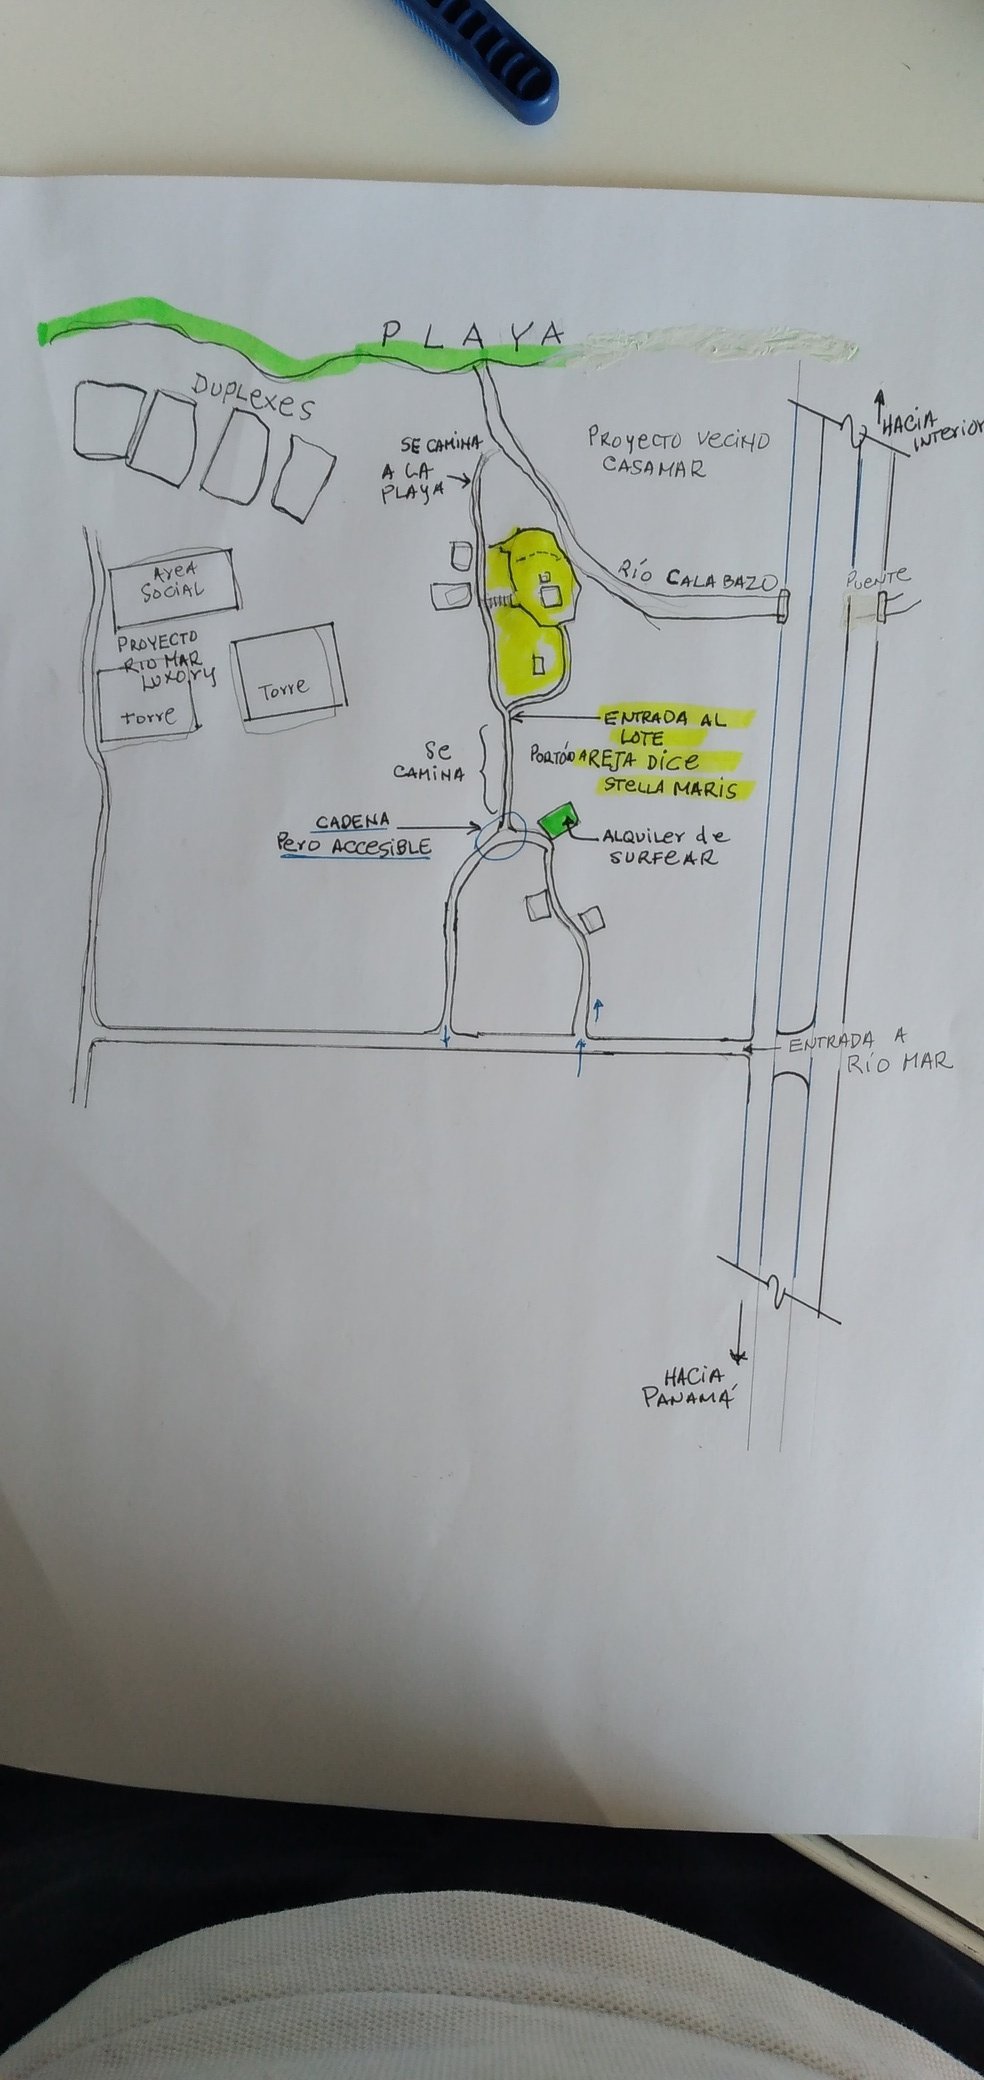 PLAYA
DUPLEXES
SE CAMINA
A LA
PLAYA
PROYECTO VECINO
CASAMAR
HACIA
INTERIOR
RÍO CALABAZO
PUENTE
AREA
SOCIAL
PROYECTO
RIO MAR
LUXORY
TORRE
TORRE
ENTRADA AL
LOTE
PORTÓN REJA DICE
STELLA MARIS
SE
CAMINA
CADENA
PERO ACCESIBLE
ALQUILER DE
SURFEAR
ENTRADA A
RÍO MAR
HACIA
PANAMÁ